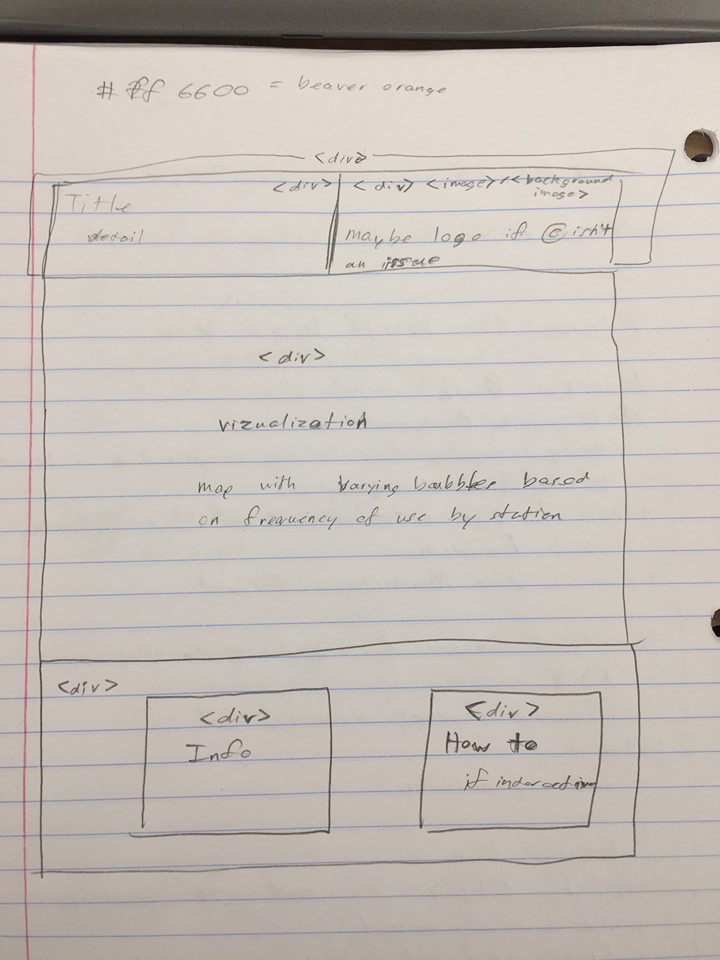 #ff 6600 = beaver orange
<div>
<div> <div> <image>/<background
image>
Title
detail
maybe logo if © isn't
an issue
<div>
vizualization
map with varying baubbles based
on frequency of use by station
<div>
<div>
Info
<div>
How to
if interactive